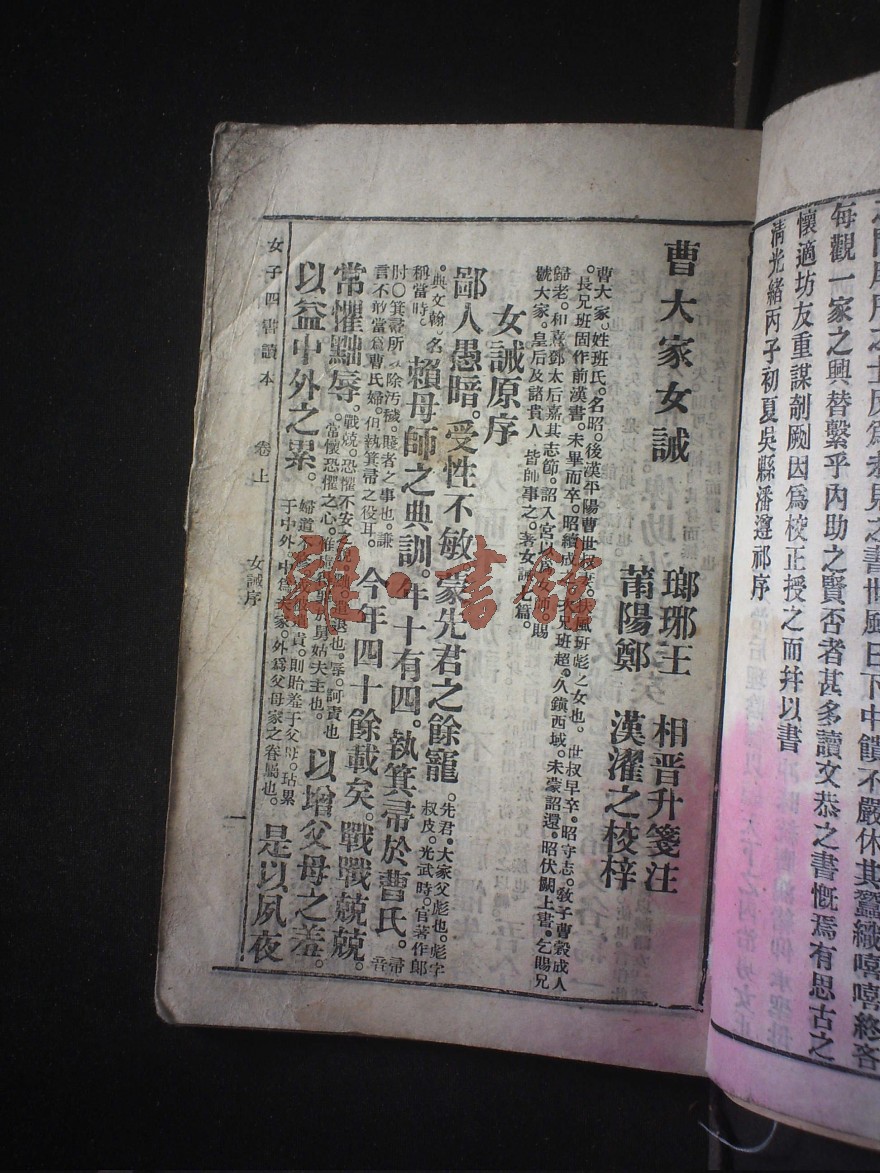 每觀一家之興替繫乎內助之賢否者甚多讀文恭之書慨焉有思古之
懷適坊友重謀剞劂因爲校正授之而幷以書
淸光緖丙子初夏吳縣潘遵祁序
曹大家女誡
瑯琊王 相晋升箋注
莆陽鄭 漢濯之校梓
曹大家。姓班氏。名昭。後漢平陽曹世叔妻。扶風班彪之女也。世叔早卒。昭守志。敎子曹穀成人
。長兄班固作前漢書。未畢而卒。昭續成之。次兄班超。久鎭西域。未蒙詔還。昭伏闕上書。乞賜兄
歸老。和熹鄧太后嘉其志節。詔入宮 賜
號大家。皇后及諸貴人 皆師事之。著女誡七篇。
女誡原序
鄙人愚暗。受性不敏蒙先君之餘寵。先君。大家父彪也。彪字
叔皮。光武時。官著作郎
。典文翰。名
稱當時。賴母師之典訓。年十有四。執箕帚於曹氏。帚音
肘〇箕帚所以除汚穢。賤者之事也。謙
言不敢當爲曹氏婦。但執箕帚之役耳。今年四十餘載矣。戰戰兢兢。
常懼黜辱。戰兢。恐懼不安之 退也。辱。訶責也
。常懷恐懼之心。惟 得罪於舅姑夫主也。以增父母之羞。
以益中外之累。婦道不 責。則貽羞于父母。玷累
于中外。中爲夫家。外爲父母家之眷屬也。是以夙夜
女子四書讀本 卷上 女誡序 一
雜·書館